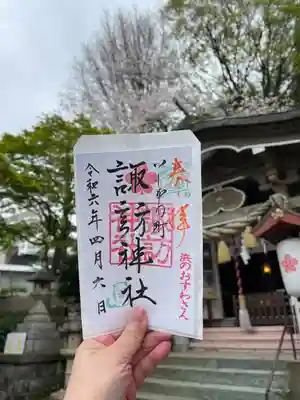 奉拝
いわいの町
諏訪神社
浜のおすわさん
令和六年四月六日